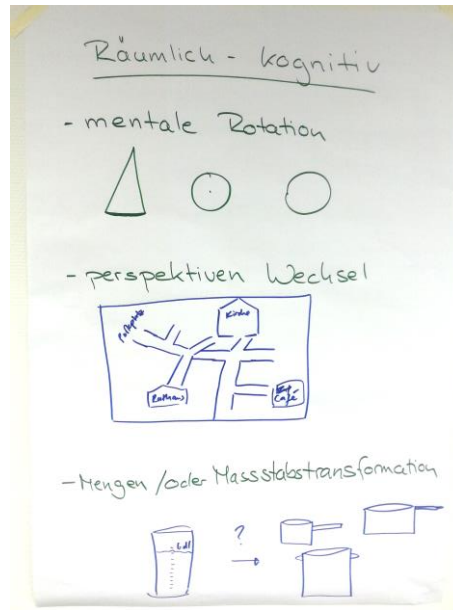 Räumlich - kognitiv
- mentale Rotation
- perspektiven Wechsel
Parkplatz
Kirche
Rathaus
Café
- Mengen /oder Massstabstransformation
?